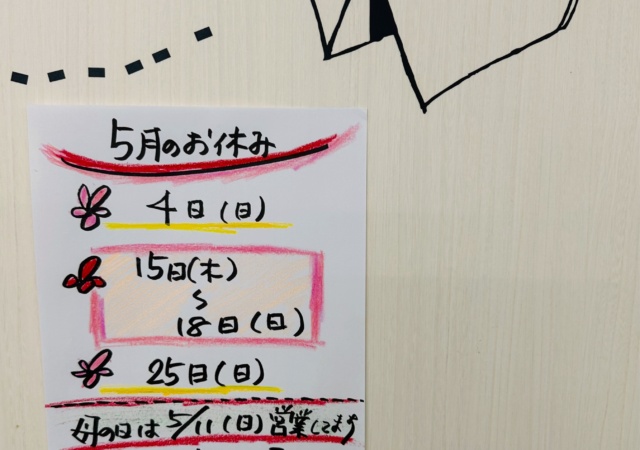 5月のお休み
4日(日)
15日(木)
〜
18日(日)
25日(日)
母の日は5/11(日)営業してます